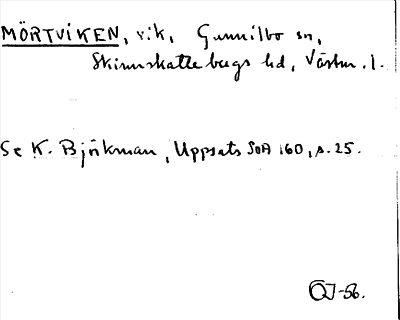 MÖRTVIKEN, vik, Gunnilbo sn,
Skinnskattebergs hd, Västm. l.
Se K. Björkman, Uppsats SOA 160, s. 25.
OJ-56.